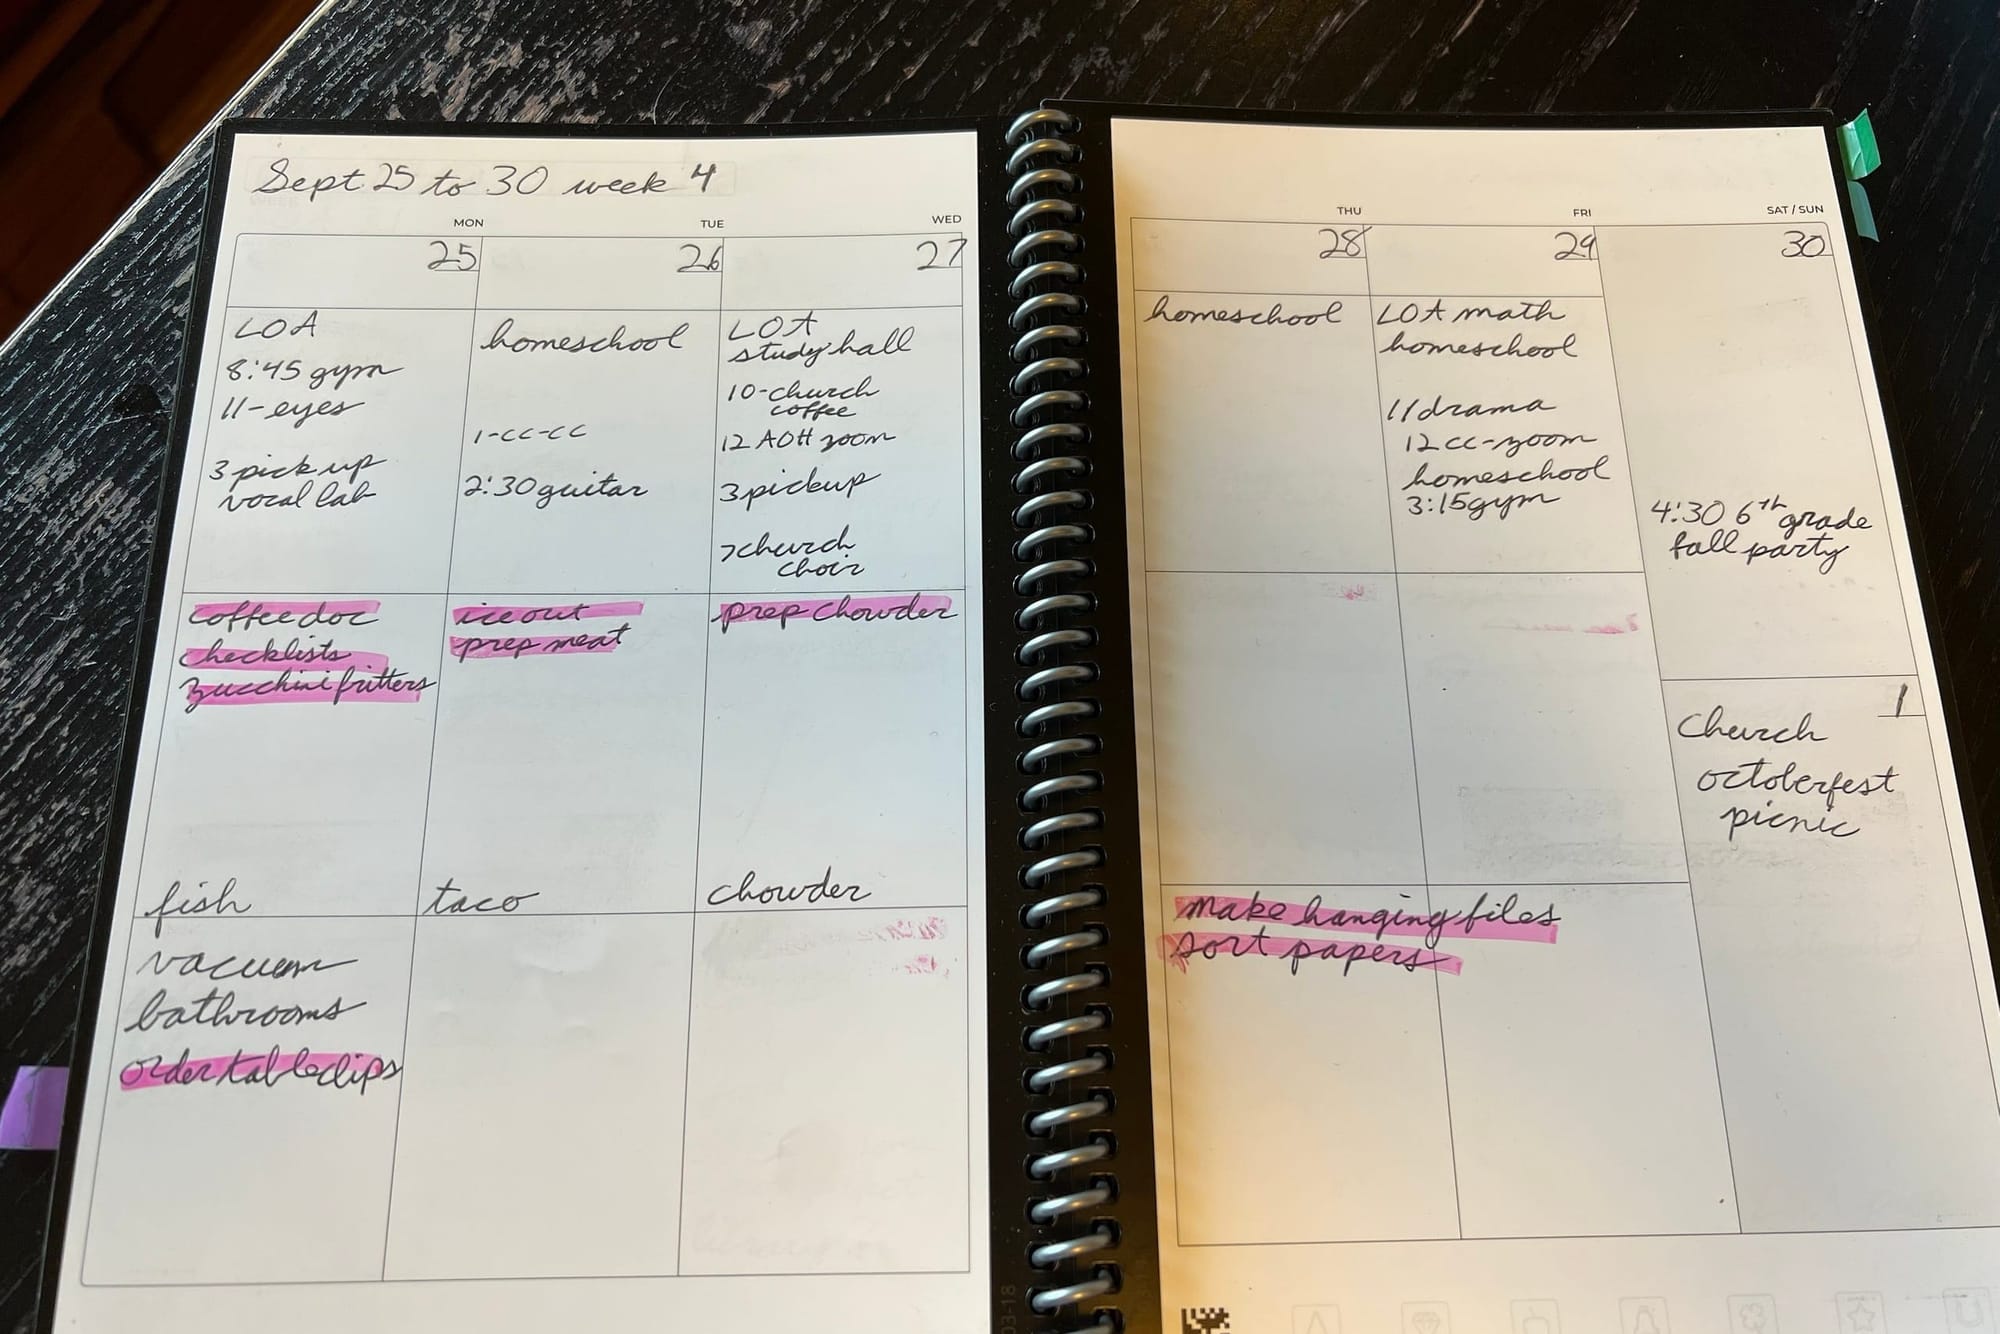 Sept 25 to 30 week 4
MON
TUE
WED
25
26
27
LOA
8:45 gym
11-eyes
3 pick up
vocal lab
homeschool
1-cc-cc
2:30 guitar
LOA
study hall
10-church
coffee
12 AOH zoom
3 pickup
7 church
choir
coffee doc
checklists
zucchini fritters
ice out
prep meat
prep chowder
fish
taco
chowder
vacuum
bathrooms
order tableclips
THU
FRI
SAT / SUN
28
29
30
homeschool
LOA math
homeschool
11 drama
12 cc-zoom
homeschool
3:15 gym
4:30 6th grade
fall party
1
Church
octoberfest
picnic
make hanging files
sort papers